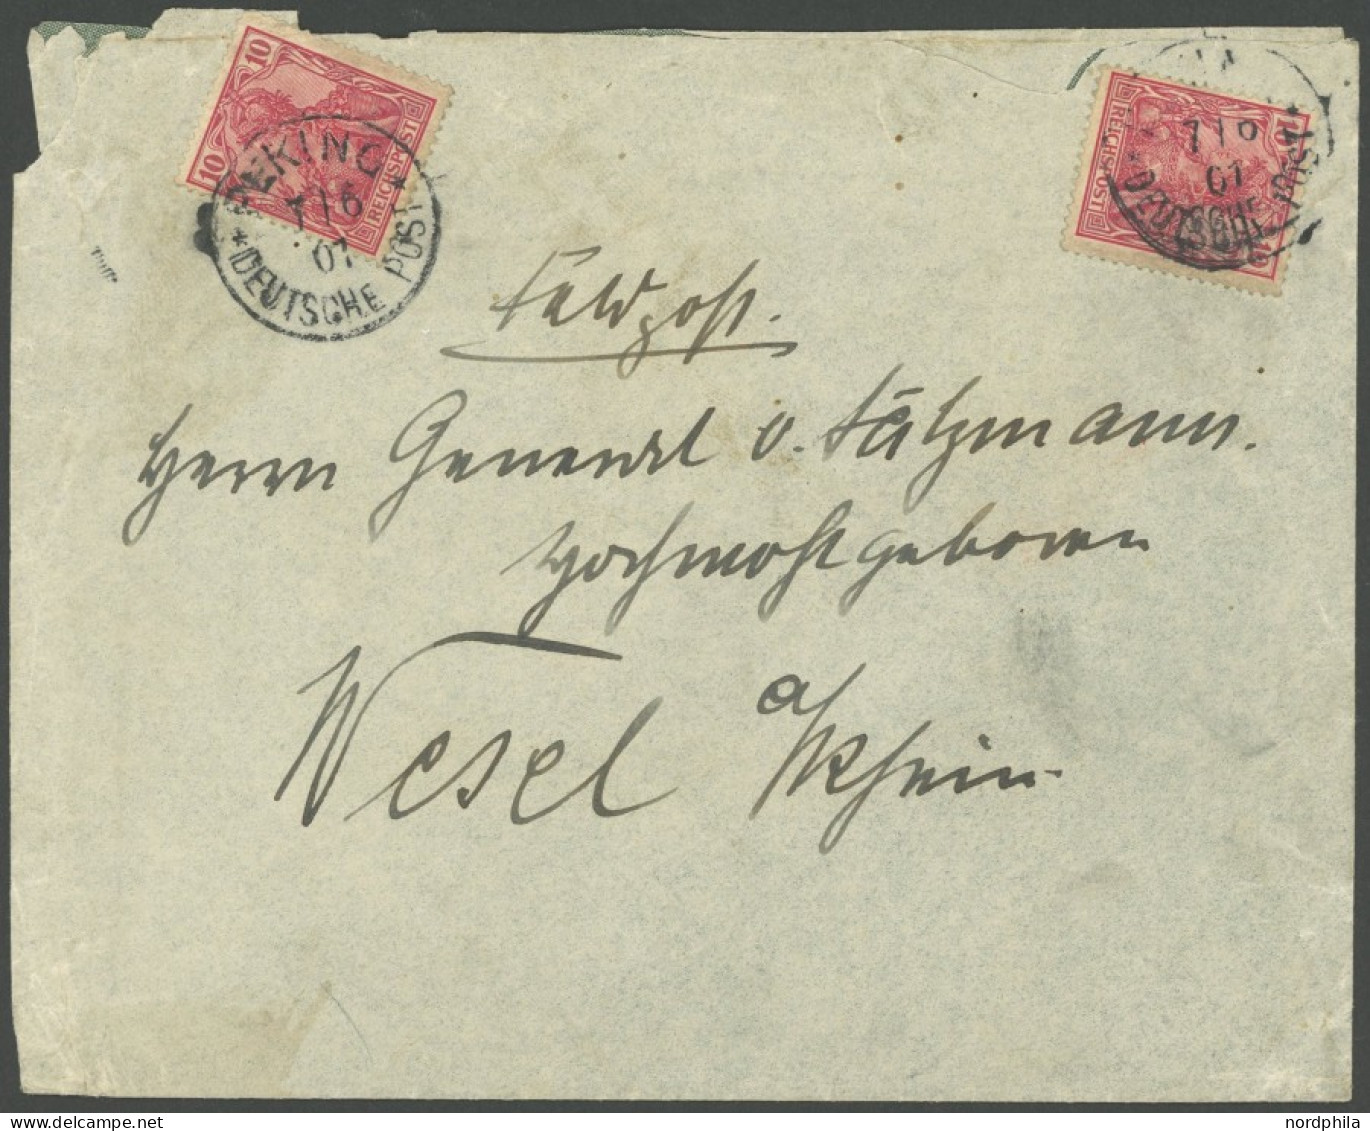 10
10
REICHSPOST
PEKING
7/6
01
* DEUTSCHE POST *
REICHSPOST
7/6
01
* DEUTSCHE POST *
Feldpost.
Herrn General v.
Hochwohlgeboren
Wesel a/Rhein.
nordphila